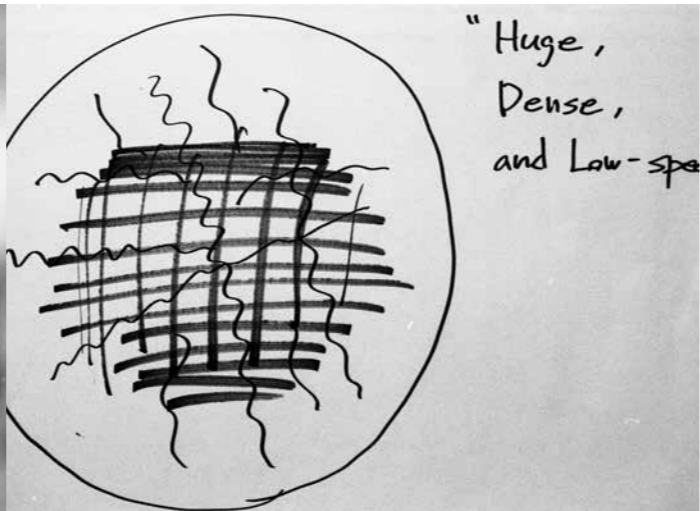 "Huge,
Dense,
and Low-spe